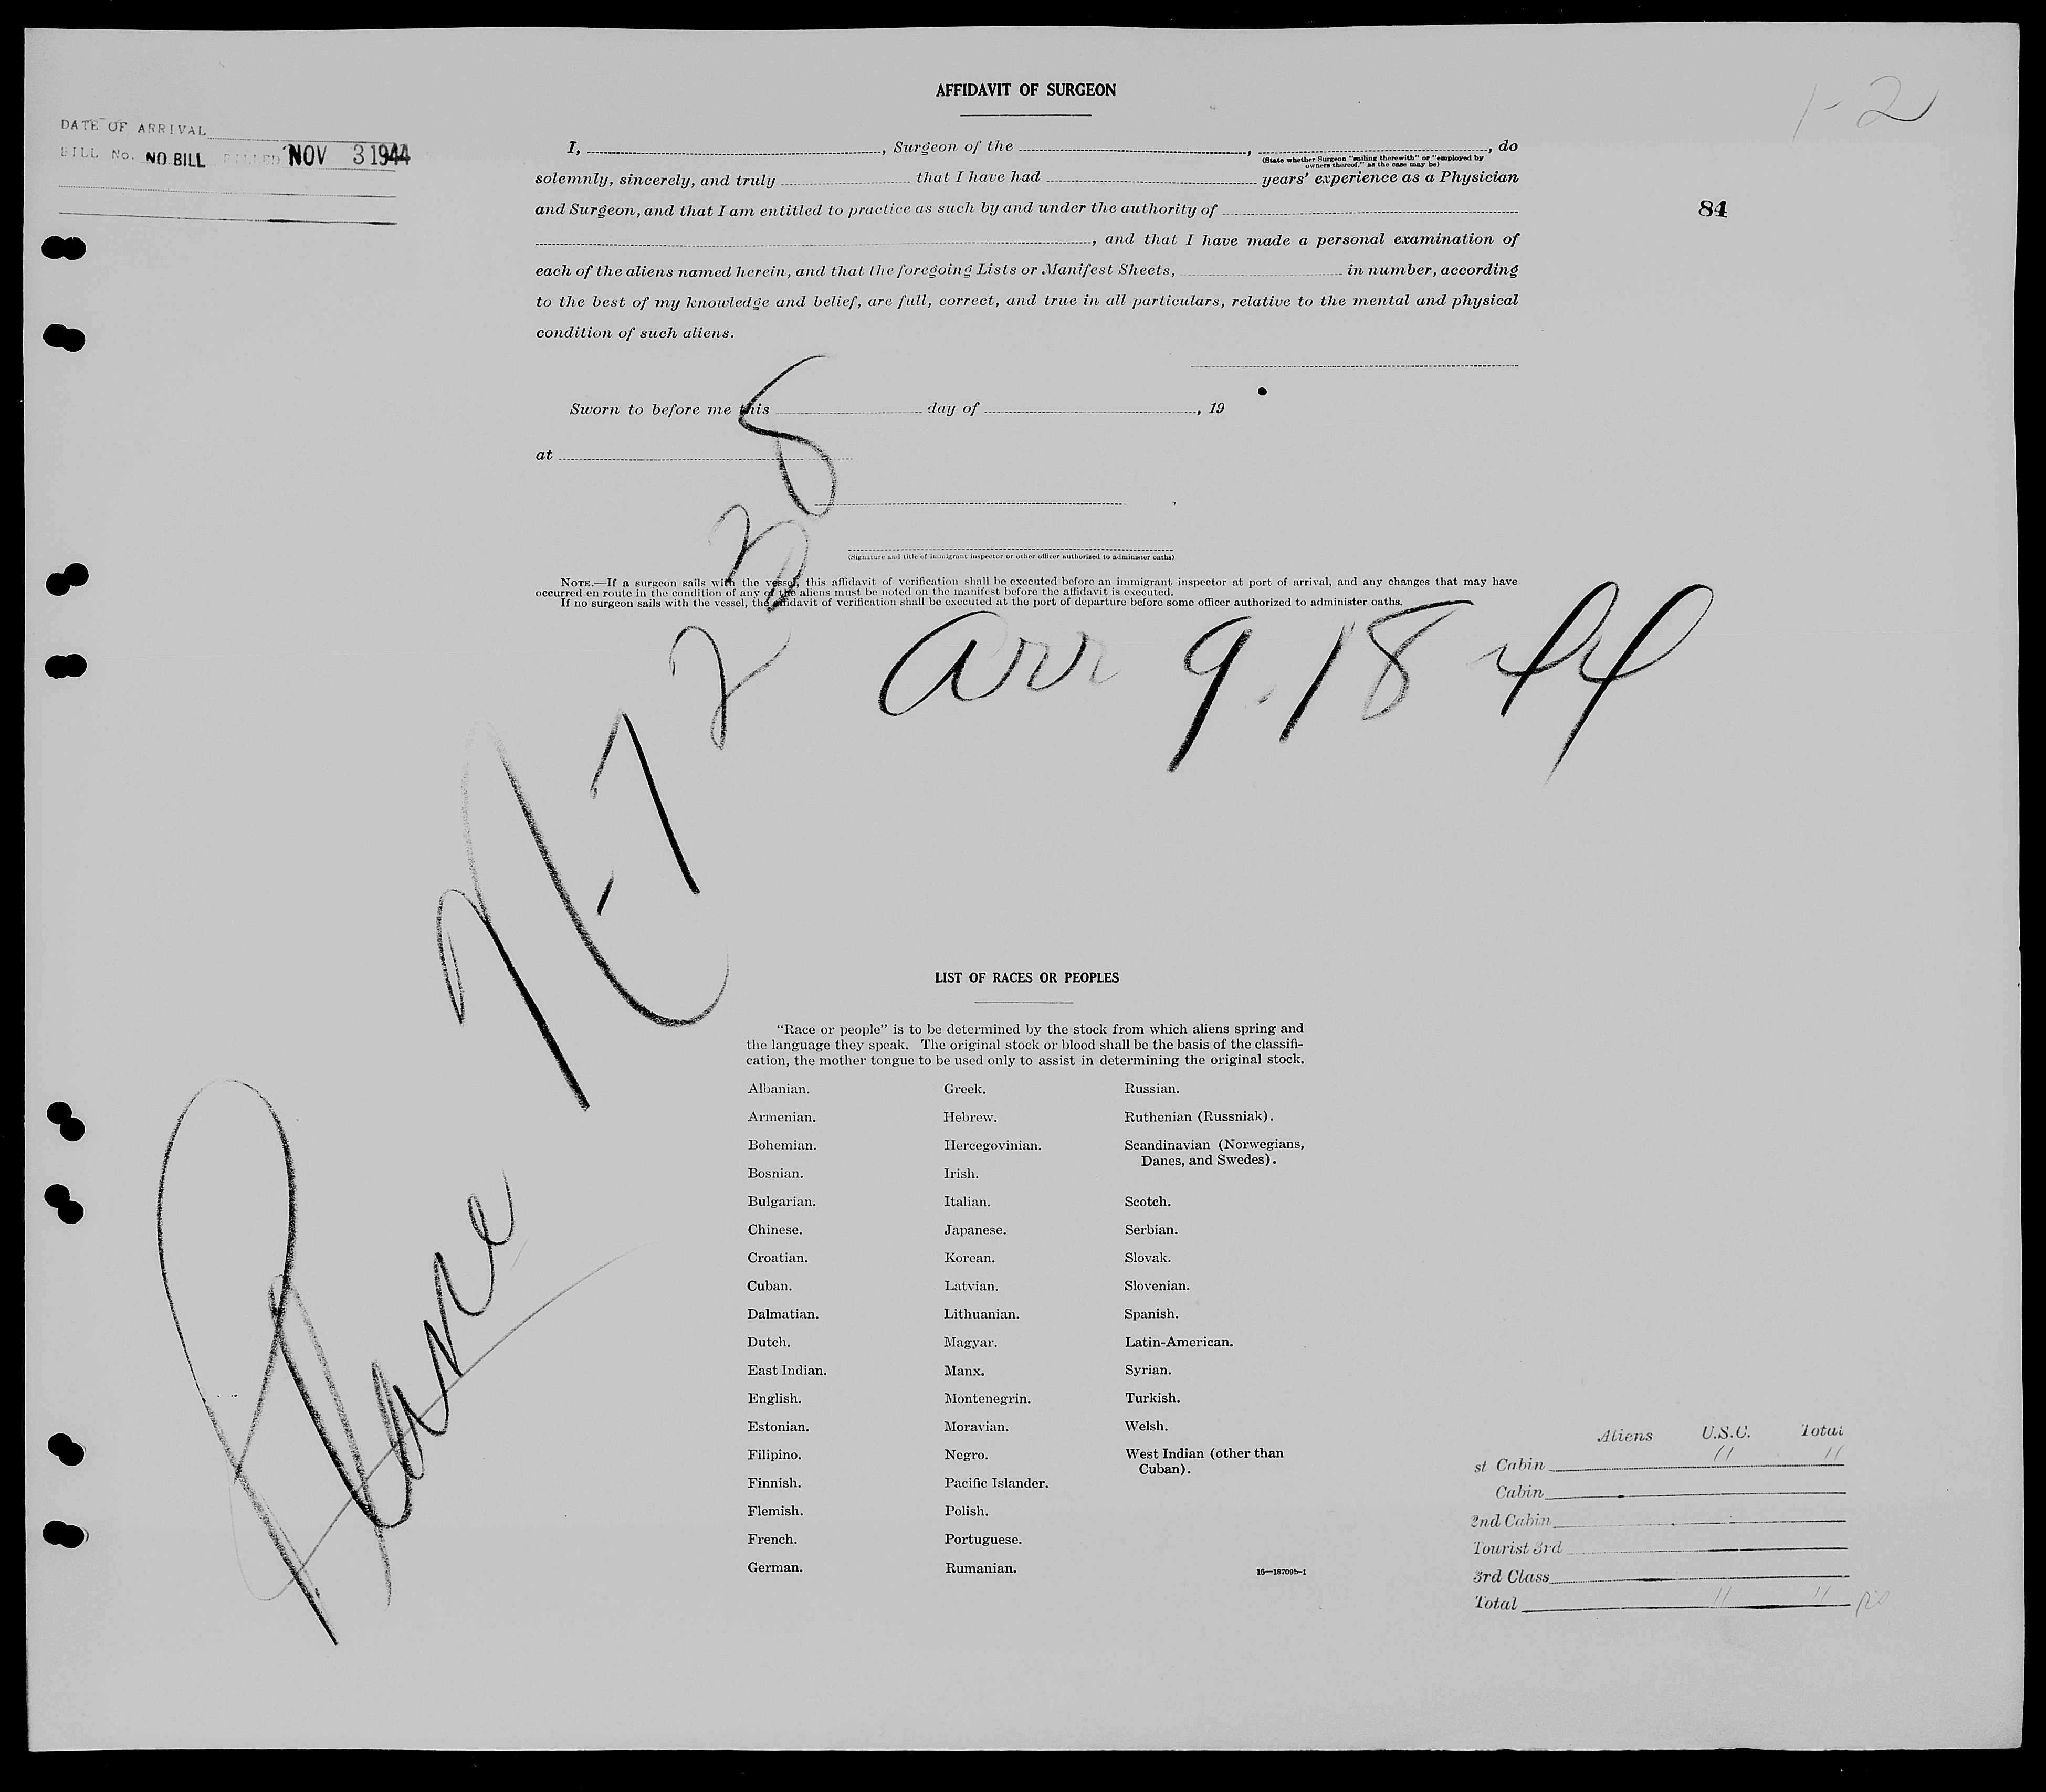 AFFIDAVIT OF SURGEON
1-2
DATE OF ARRIVAL
BILL No. NO BILL BILLED NOV 3 1944
84
I, , Surgeon of the , , do
(State whether Surgeon "sailing therewith" or "employed by
owners thereof," as the case may be)
solemnly, sincerely, and truly that I have had years' experience as a Physician
and Surgeon, and that I am entitled to practice as such by and under the authority of
, and that I have made a personal examination of
each of the aliens named herein, and that the foregoing Lists or Manifest Sheets, in number, according
to the best of my knowledge and belief, are full, correct, and true in all particulars, relative to the mental and physical
condition of such aliens.
Sworn to before me this day of , 19
at
(Signature and title of immigrant inspector or other officer authorized to administer oaths)
NOTE.—If a surgeon sails with the vessel, this affidavit of verification shall be executed before an immigrant inspector at port of arrival, and any changes that may have
occurred en route in the condition of any of the aliens must be noted on the manifest before the affidavit is executed.
If no surgeon sails with the vessel, the affidavit of verification shall be executed at the port of departure before some officer authorized to administer oaths.
arr 9.18 44
Plane
7235
LIST OF RACES OR PEOPLES
"Race or people" is to be determined by the stock from which aliens spring and
the language they speak. The original stock or blood shall be the basis of the classifi-
cation, the mother tongue to be used only to assist in determining the original stock.
Albanian.
Armenian.
Bohemian.
Bosnian.
Bulgarian.
Chinese.
Croatian.
Cuban.
Dalmatian.
Dutch.
East Indian.
English.
Estonian.
Filipino.
Finnish.
Flemish.
French.
German.
Greek.
Hebrew.
Hercegovinian.
Irish.
Italian.
Japanese.
Korean.
Latvian.
Lithuanian.
Magyar.
Manx.
Montenegrin.
Moravian.
Negro.
Pacific Islander.
Polish.
Portuguese.
Rumanian.
Russian.
Ruthenian (Russniak).
Scandinavian (Norwegians,
Danes, and Swedes).
Scotch.
Serbian.
Slovak.
Slovenian.
Spanish.
Latin-American.
Syrian.
Turkish.
Welsh.
West Indian (other than
Cuban).
16—18709b-1
Aliens U.S.C. Total
st Cabin 11 11
Cabin
2nd Cabin
Tourist 3rd
3rd Class
Total 11 11